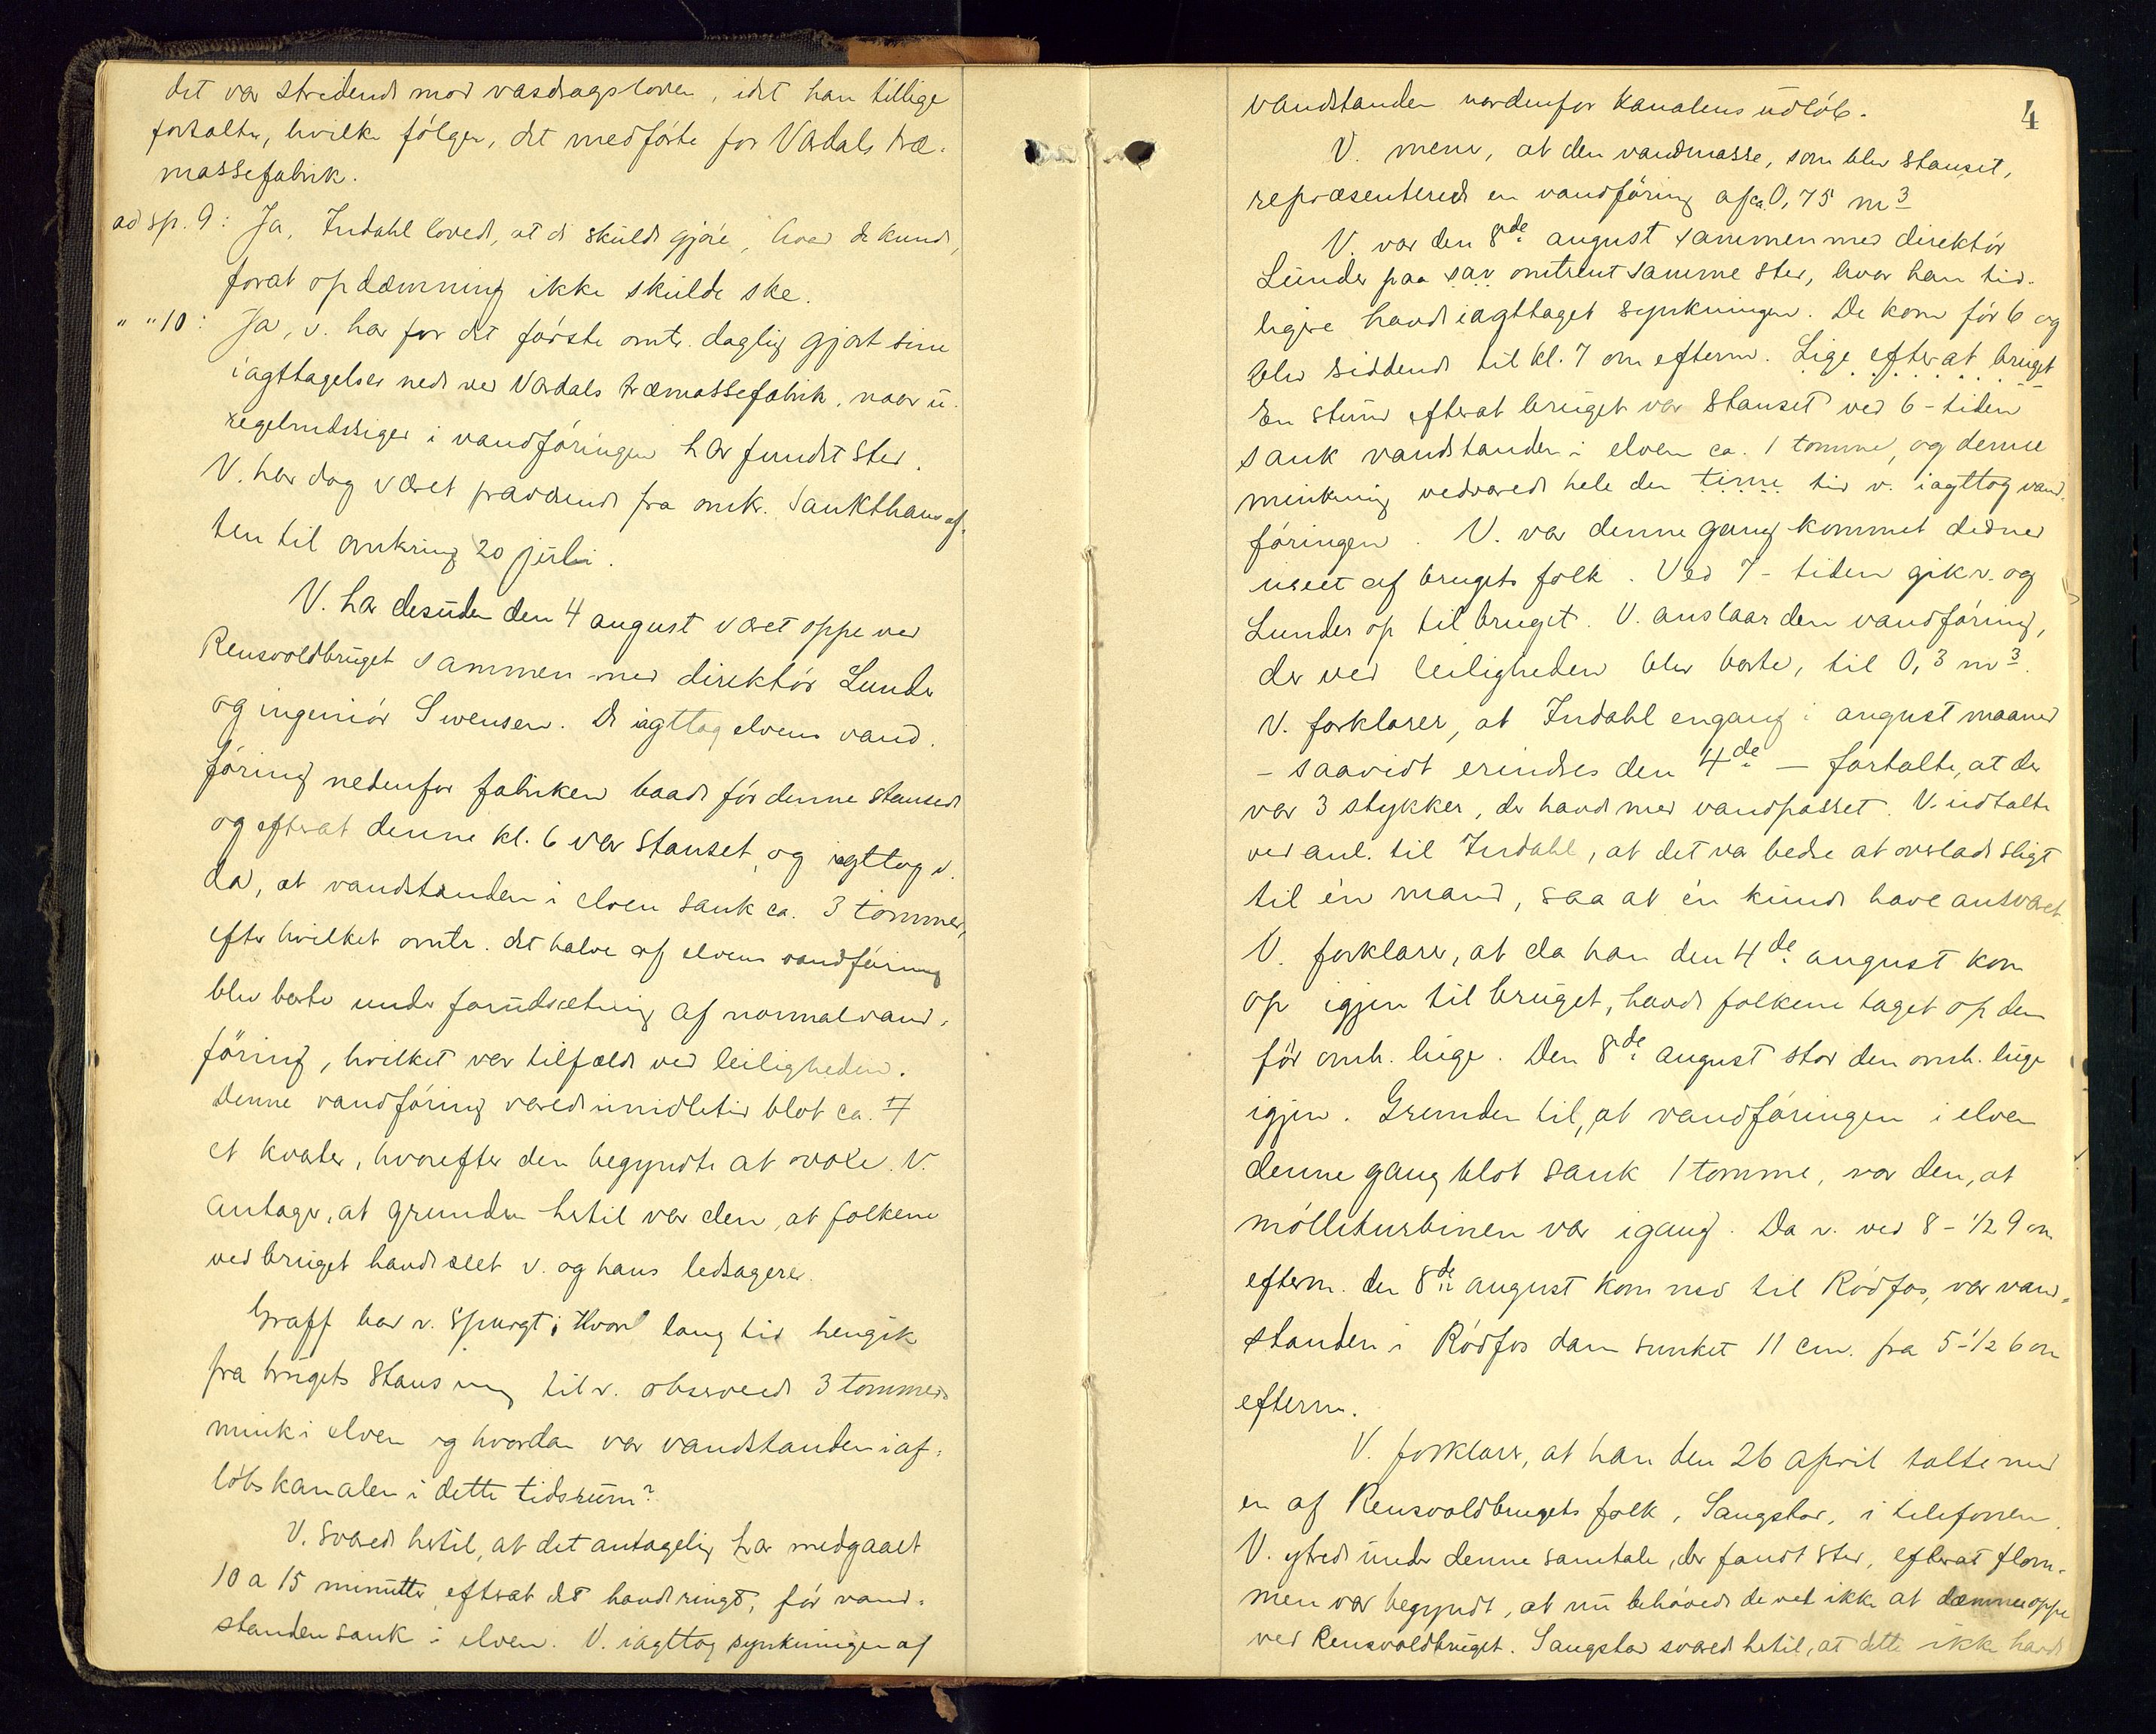 det var stridende mod vasdragsloven, idet han tillige
fortalte, hvilke følger, det medførte for Vardals træ-
massefabrik.
ad sp. 9: Ja, Indahl lovede, at de skulde gjøre, hvad de kunde,
forat opdæmning ikke skulde ske.
" " 10: Ja, v. har for det første omtr. daglig gjort sine
iagttagelser nede ved Vardals træmassefabrik, naar u-
regelmæssiger i vandføringen har fundet sted.
V. har dog været fraværende fra omkr. Sankthansaf-
ten til omkring 20 juli.
V. har desuden den 4 august været oppe ved
Rensvoldbruget sammen med direktør Lunde
og ingeniør Swensen. De iagttog elvens vand-
føring nedenfor fabriken baade før denne stansede
og efterat denne kl. 6 var stanset, og iagttog v.
da, at vandstanden i elven sank ca. 3 tommer,
efter hvilket omtr. det halve af elvens vandføring
blev borte under forudsetning af normalvand-
føring, hvilket var tilfælde ved leiligheden.
Denne vandføring varede imidlertid blot ca. 7
et kvarter, hvorefter den begyndte at vokse. V.
antager, at grunden hertil var den, at folkene
ved bruget havde seet v. og hans ledsagere.
Graff har v. spurgt: Hvor lang tid hengik
fra brugets stansning til v. observerede 3 tommers
mink i elven og hvordan var vandstanden i af-
løbskanalen i dette tidsrum?
V. svarede hertil, at det antagelig har medgaaet
10 a 15 minutter efterat det havde ringt, før vand-
standen sank i elven. V. iagttog synkningen af
4
vandstanden nordenfor kanalens udløb.
V. mener, at den vandmasse, som blev stanset,
repræsenterede en vandføring af ca. 0,75 m3
V. var den 8de august sammen med direktør
Lunde paa sav omtrent samme sted, hvor han tid-
ligere havde iagttaget synkningen. De kom før 6 og
blev siddende til kl. 7 om efterm. Lige efterat bruget
En stund efterat bruget var stanset ved 6-tiden
sank vandstanden i elven ca. 1 tomme, og denne
minkning vedvarede hele den time tid v. iagttog vand-
føringen. V. var denne gang kommet didned
useet af brugets folk. Ved 7-tiden gik v. og
Lunde op til bruget. V. anslaar den vandføring,
der ved leiligheden blev borte, til 0,3 m3.
V. forklarer, at Indahl engang i august maaned
- saavidt erindres den 4de - fortalte, at der
var 3 stykker, der havde med vandpasset. V. udtalte
ved anl. til Indahl, at det var bedre at overlade sligt
til én mand, saa at én kunde have ansvaret
V. forklarer, at da han den 4de august kom
op igjen til bruget, havde folkene taget op den
før omh. luge. Den 8de august stod den omh. luge
igjen. Grunden til, at vandføringen i elven
denne gang blot sank 1 tomme, var den, at
mølleturbinen var igang. Da v. ved 8 - 1/2 9 om
efterm. den 8de august kom ned til Rødfos, var vand-
standen i Rødfos dam sunket 11 cm. fra 5 - 1/2 6 om
efterm.
V. forklarer, at han den 26 april talte med
en af Rensvoldbrugets folk, Sangstad, i telefonen.
V. ytrede under denne samtale, der fandt sted, efterat flom-
men var begyndt, at nu behøvede de vel ikke at dæmme oppe
ved Rensvoldbruget. Sangstad svarede hertil, at dette ikke havde